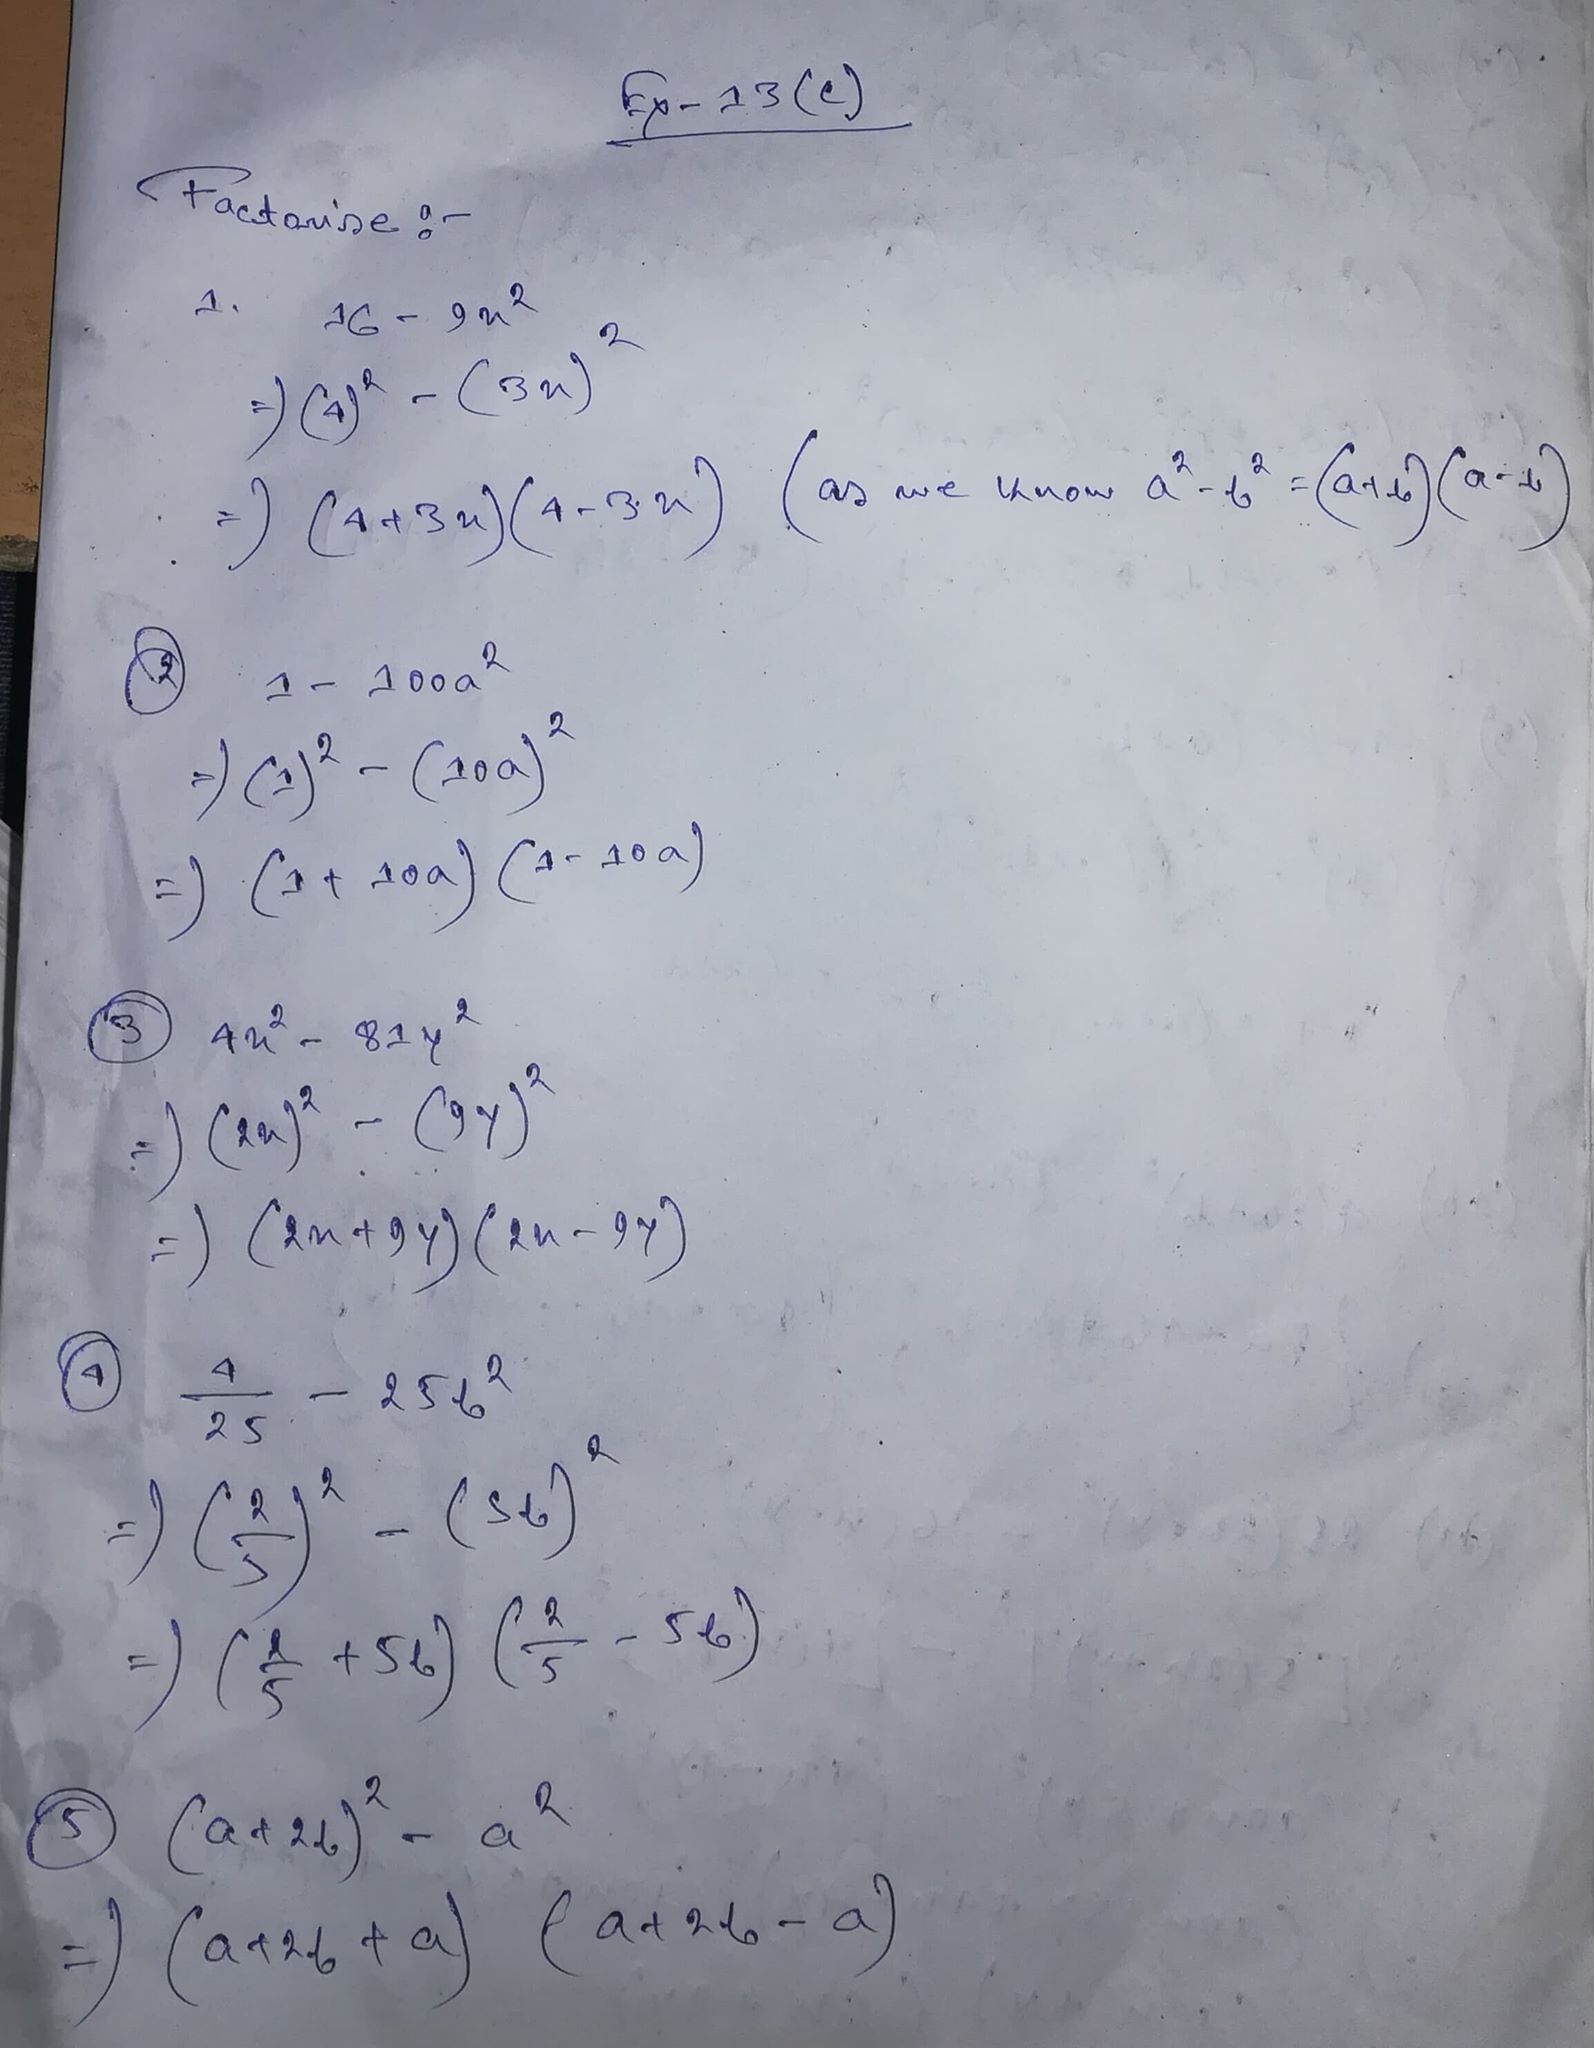 Ex-13(c)
Factorise :-
1. 16 - 9x²
=) (4)² - (3x)²
=) (4+3x)(4-3x) (as we know a²-b² = (a+b)(a-b)
② 1 - 100a²
=) (1)² - (10a)²
=) (1+10a)(1-10a)
③ 4x² - 81y²
=) (2x)² - (9y)²
=) (2x+9y)(2x-9y)
④ 4/25 - 25b²
=) (2/5)² - (5b)²
=) (2/5 + 5b)(2/5 - 5b)
⑤ (a+2b)² - a²
=) (a+2b+a) (a+2b-a)